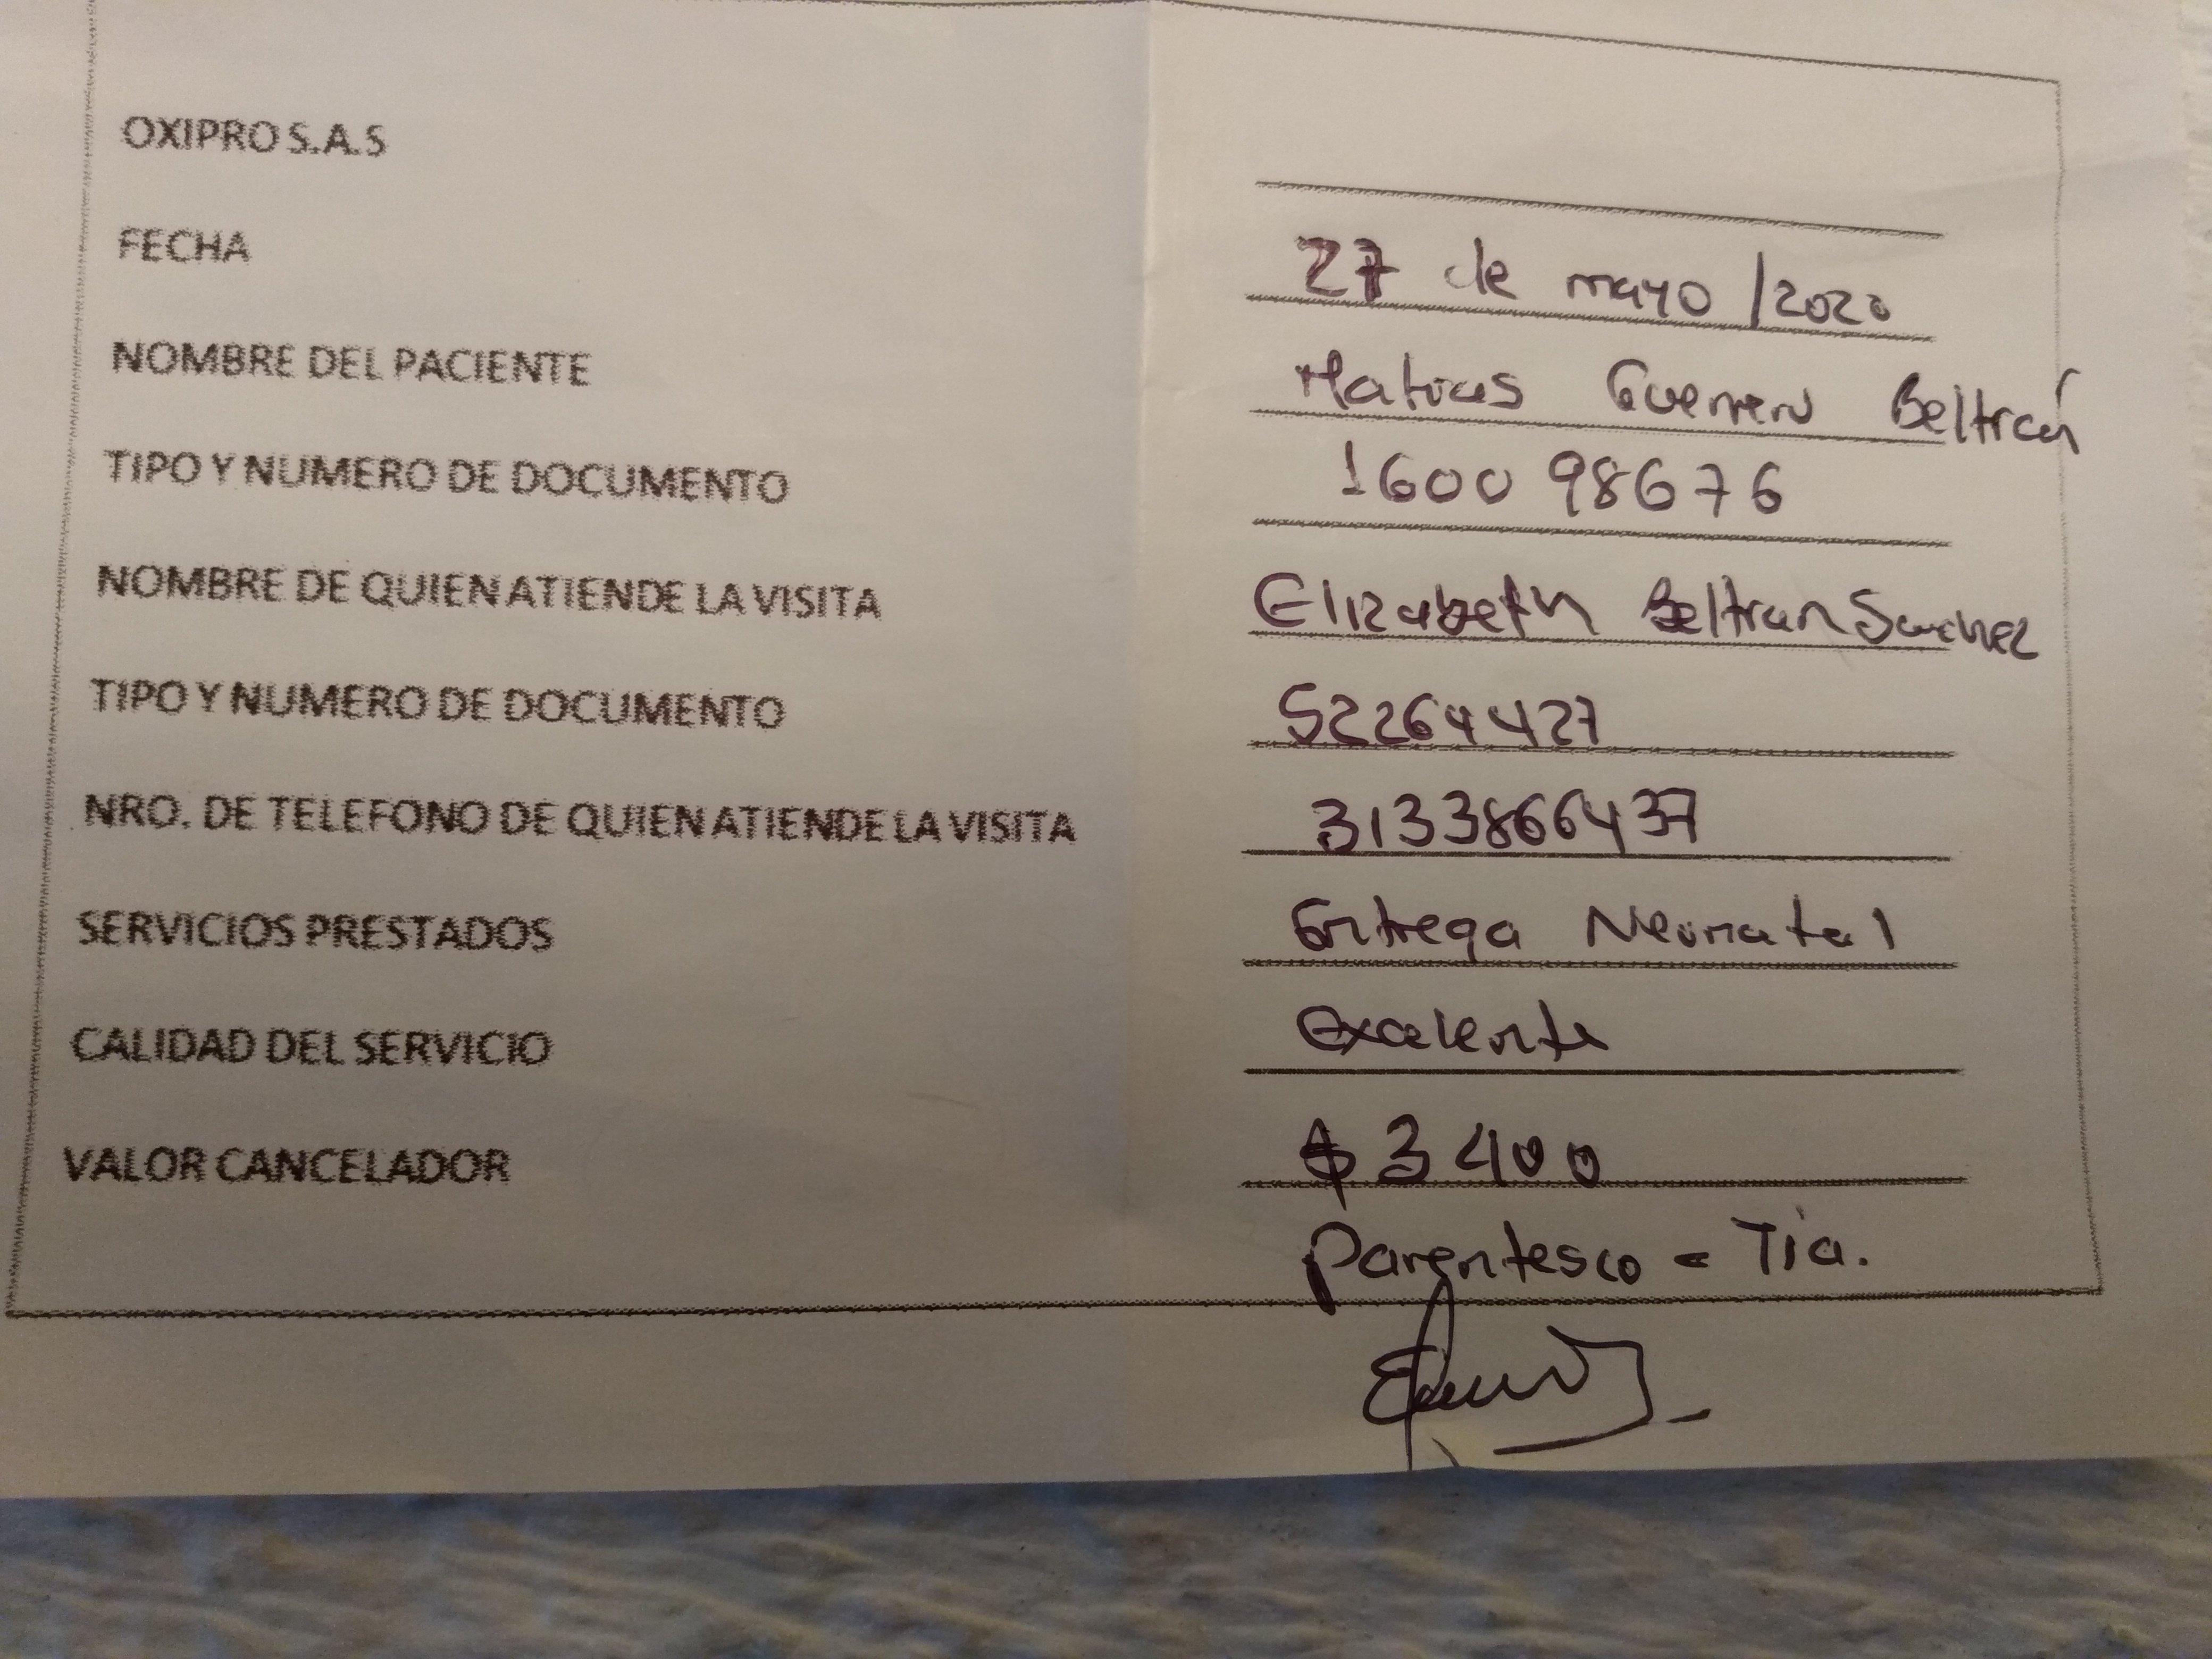 OXIPRO S.A.S
FECHA 27 de mayo /2020
NOMBRE DEL PACIENTE Matias Guerrero Beltrán
TIPO Y NUMERO DE DOCUMENTO 1600 98676
NOMBRE DE QUIEN ATIENDE LA VISITA Elizabeth Beltran Sanchez
TIPO Y NUMERO DE DOCUMENTO 52264427
NRO. DE TELEFONO DE QUIEN ATIENDE LA VISITA 3133866437
SERVICIOS PRESTADOS Entrega Neonatal
CALIDAD DEL SERVICIO Excelente
VALOR CANCELADOR $ 3400
Parentesco = Tia.